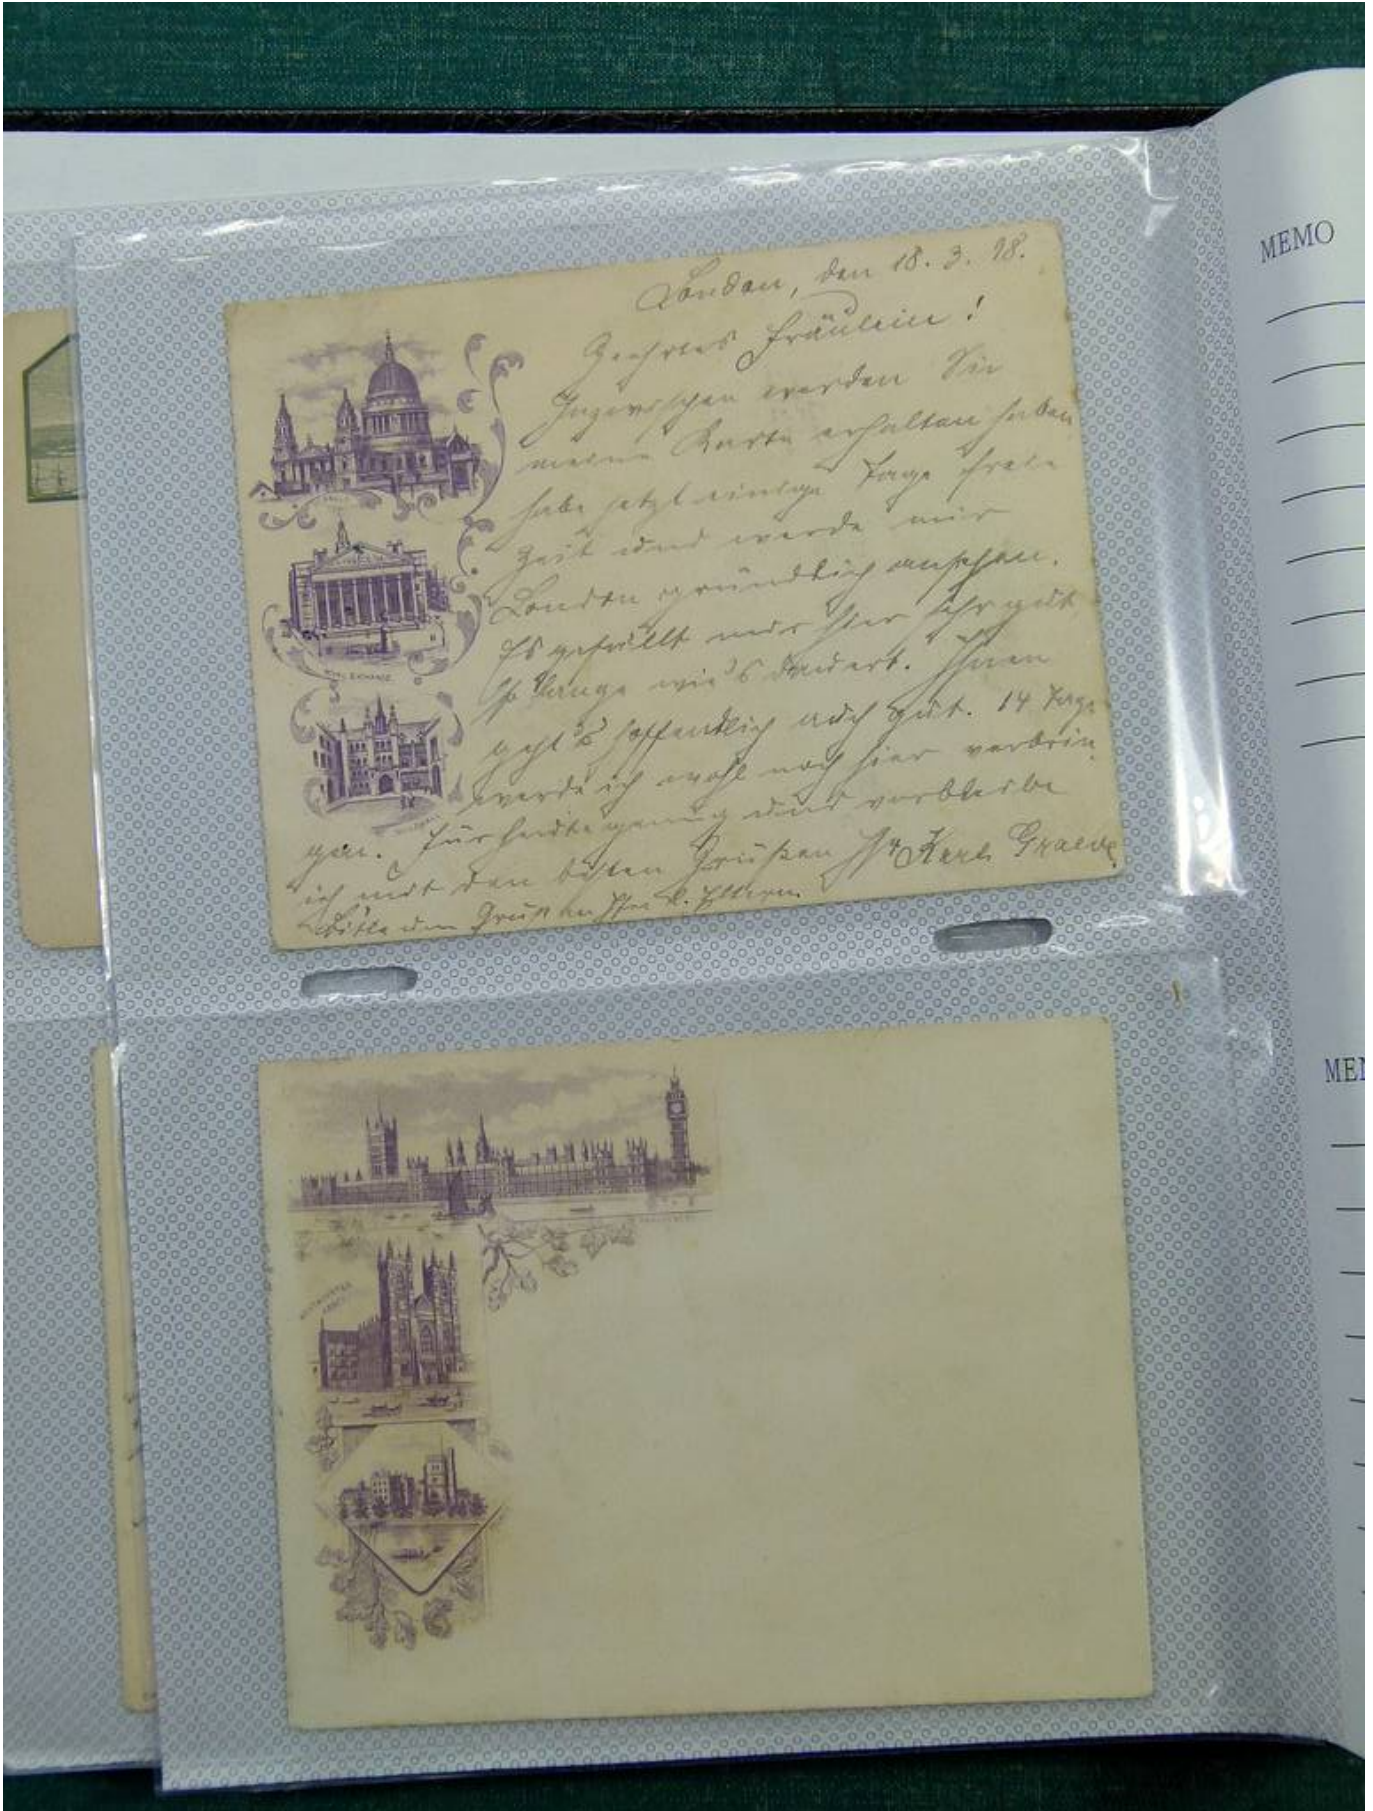 MEMO
London, den 18. 3. 98.
Geehrtes Fräulein!
Inzwischen werden Sie
meine Karte erhalten haben,
habe jetzt einige Tage freie
Zeit und werde mir
London gründlich ansehen.
Es gefällt mir hier sehr gut
so lange wie's dauert. Ihnen
geht's hoffendlich auch gut. 14 Tage
werde ich wohl noch hier verbrin
gen. Für heute genug und verbleibe
ich mit den besten Grüßen Ihr Karl Graeve
Bitte um Gruß an Ihre l. Eltern.
ROYAL EXCHANGE
GUILDHALL
WESTMINSTER
ABBEY